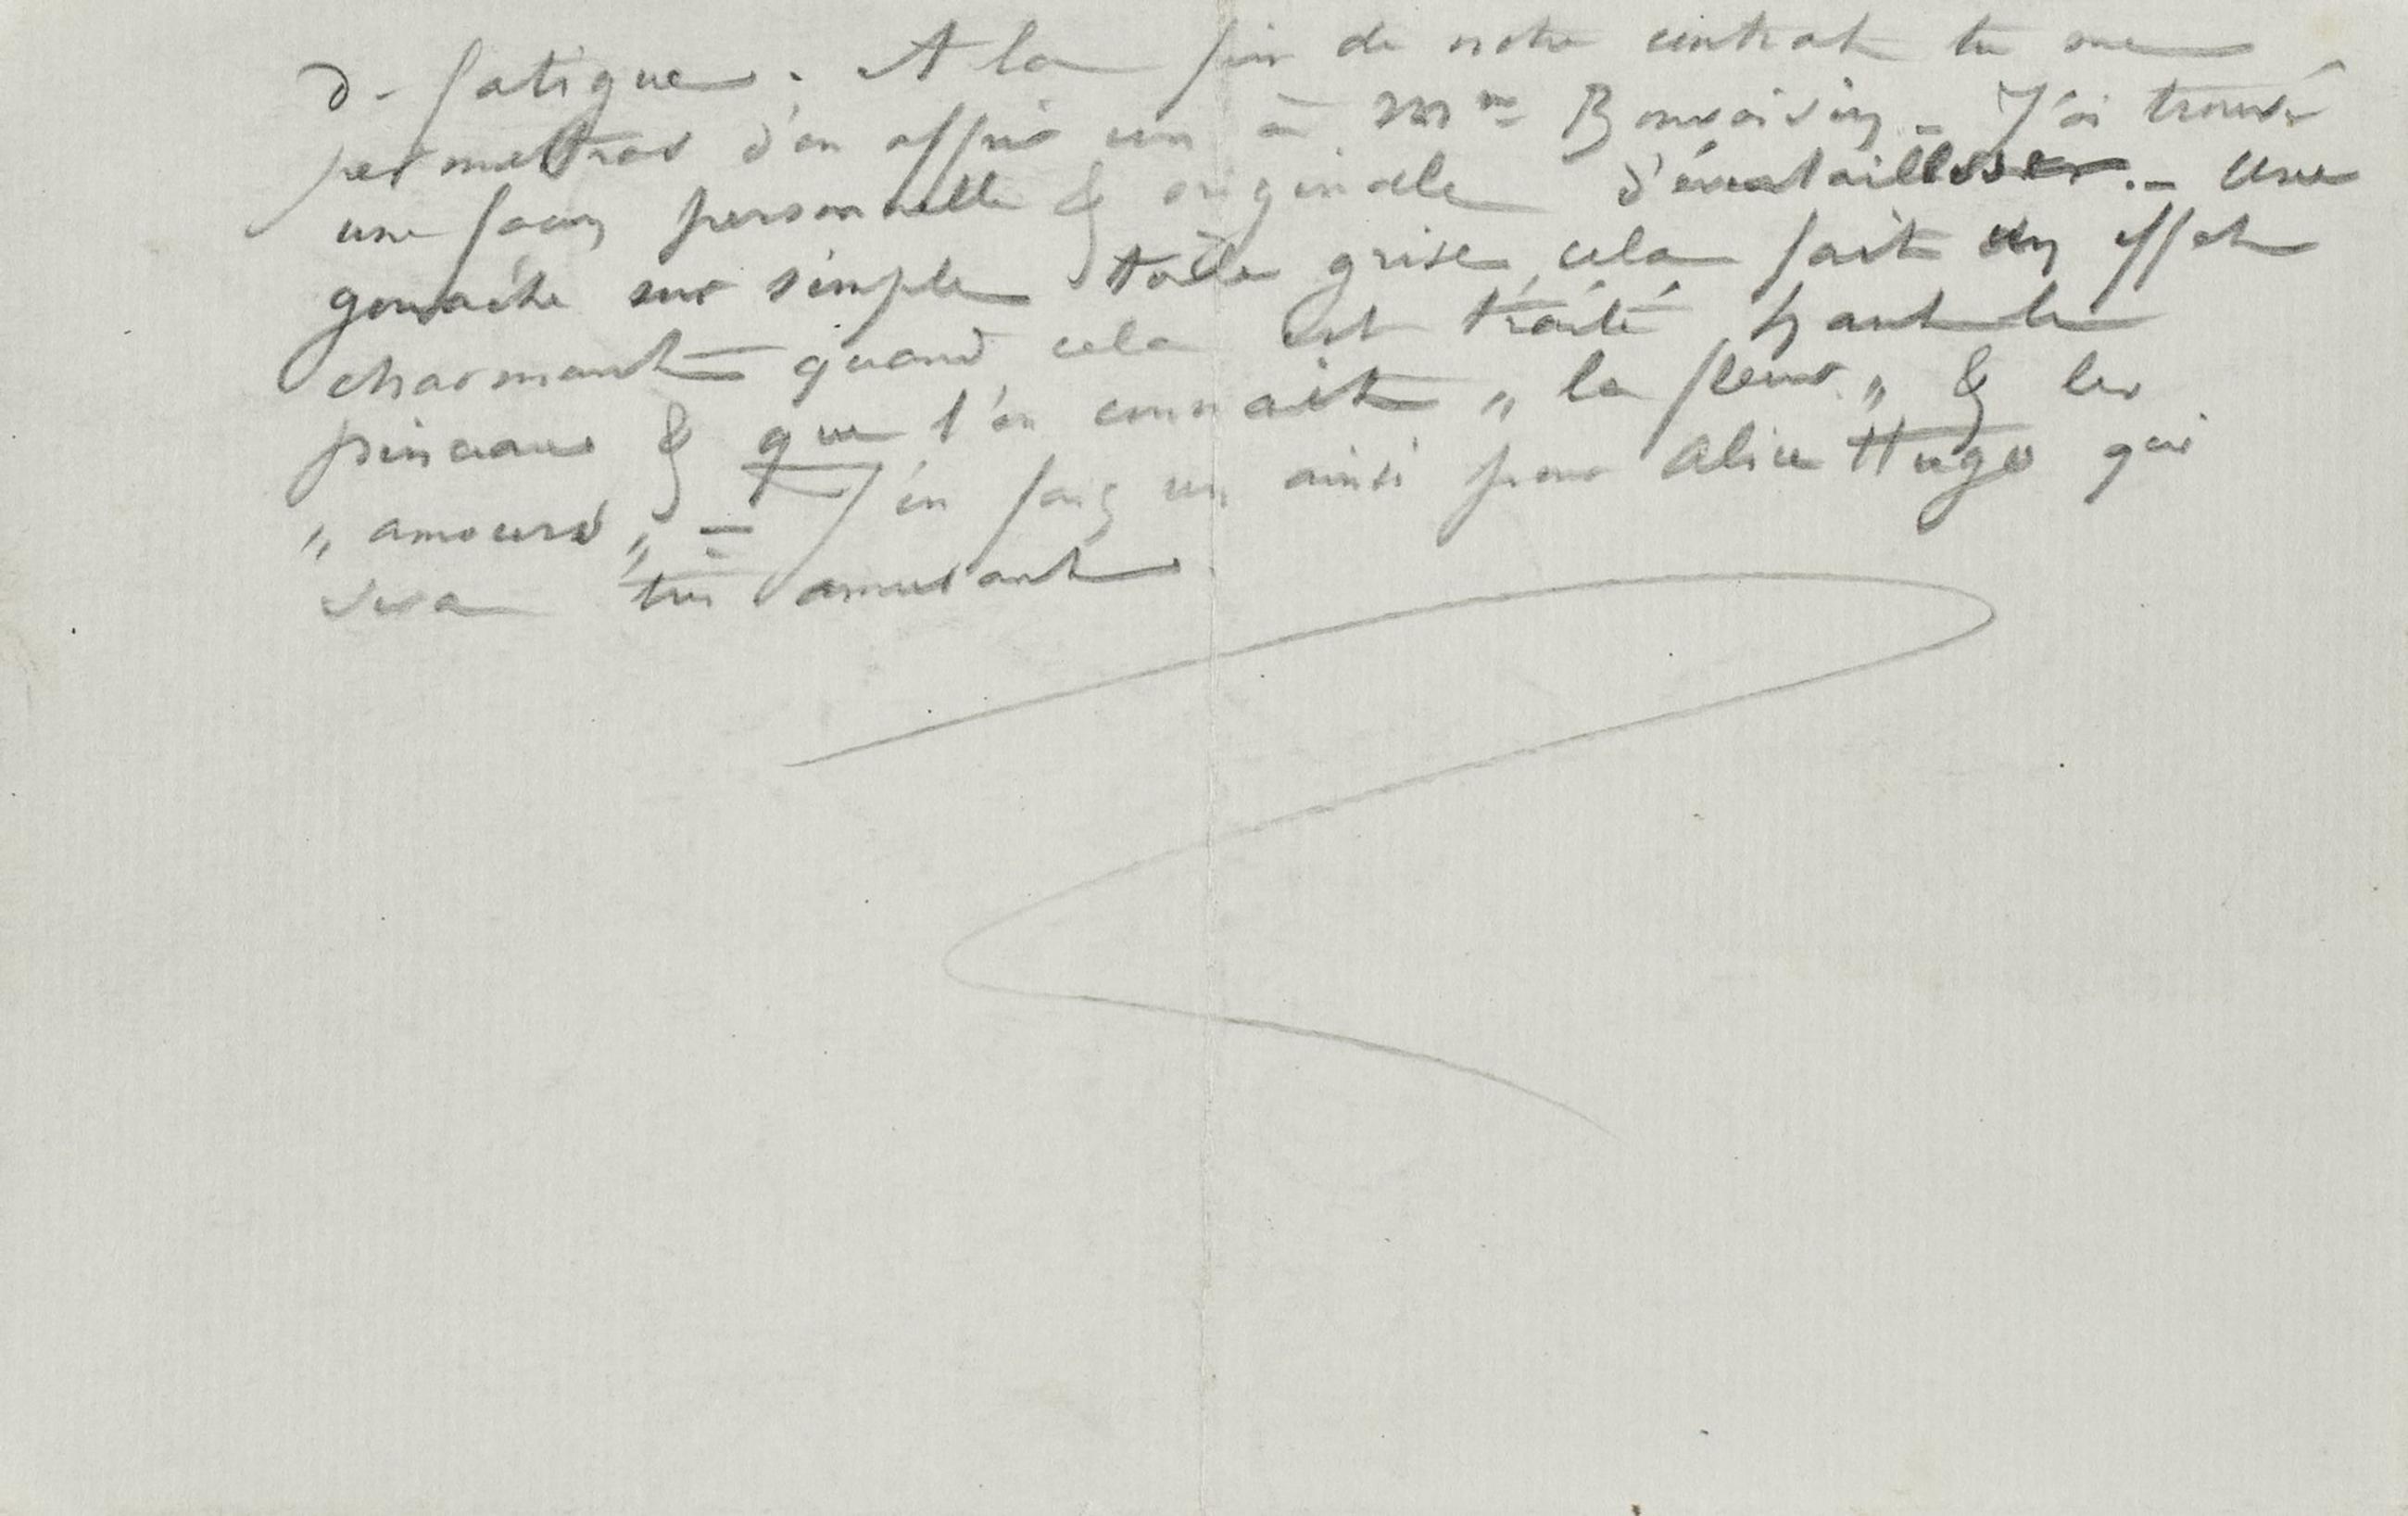 de fatigue. A la fin de notre contrat tu me
permettras d'en offrir un à Mme Bonvoisin – J'ai trouvé
une façon personnelle & originale d'éventaillosser. – Une
gouache sur simple toile grise, cela fait un effet
charmant quand cela est traité
pinceaux & que l'on connait „ la fleur „ & les
„ amours „ = J'en fais un ainsi pour Alice Hugo qui
sera très amusant